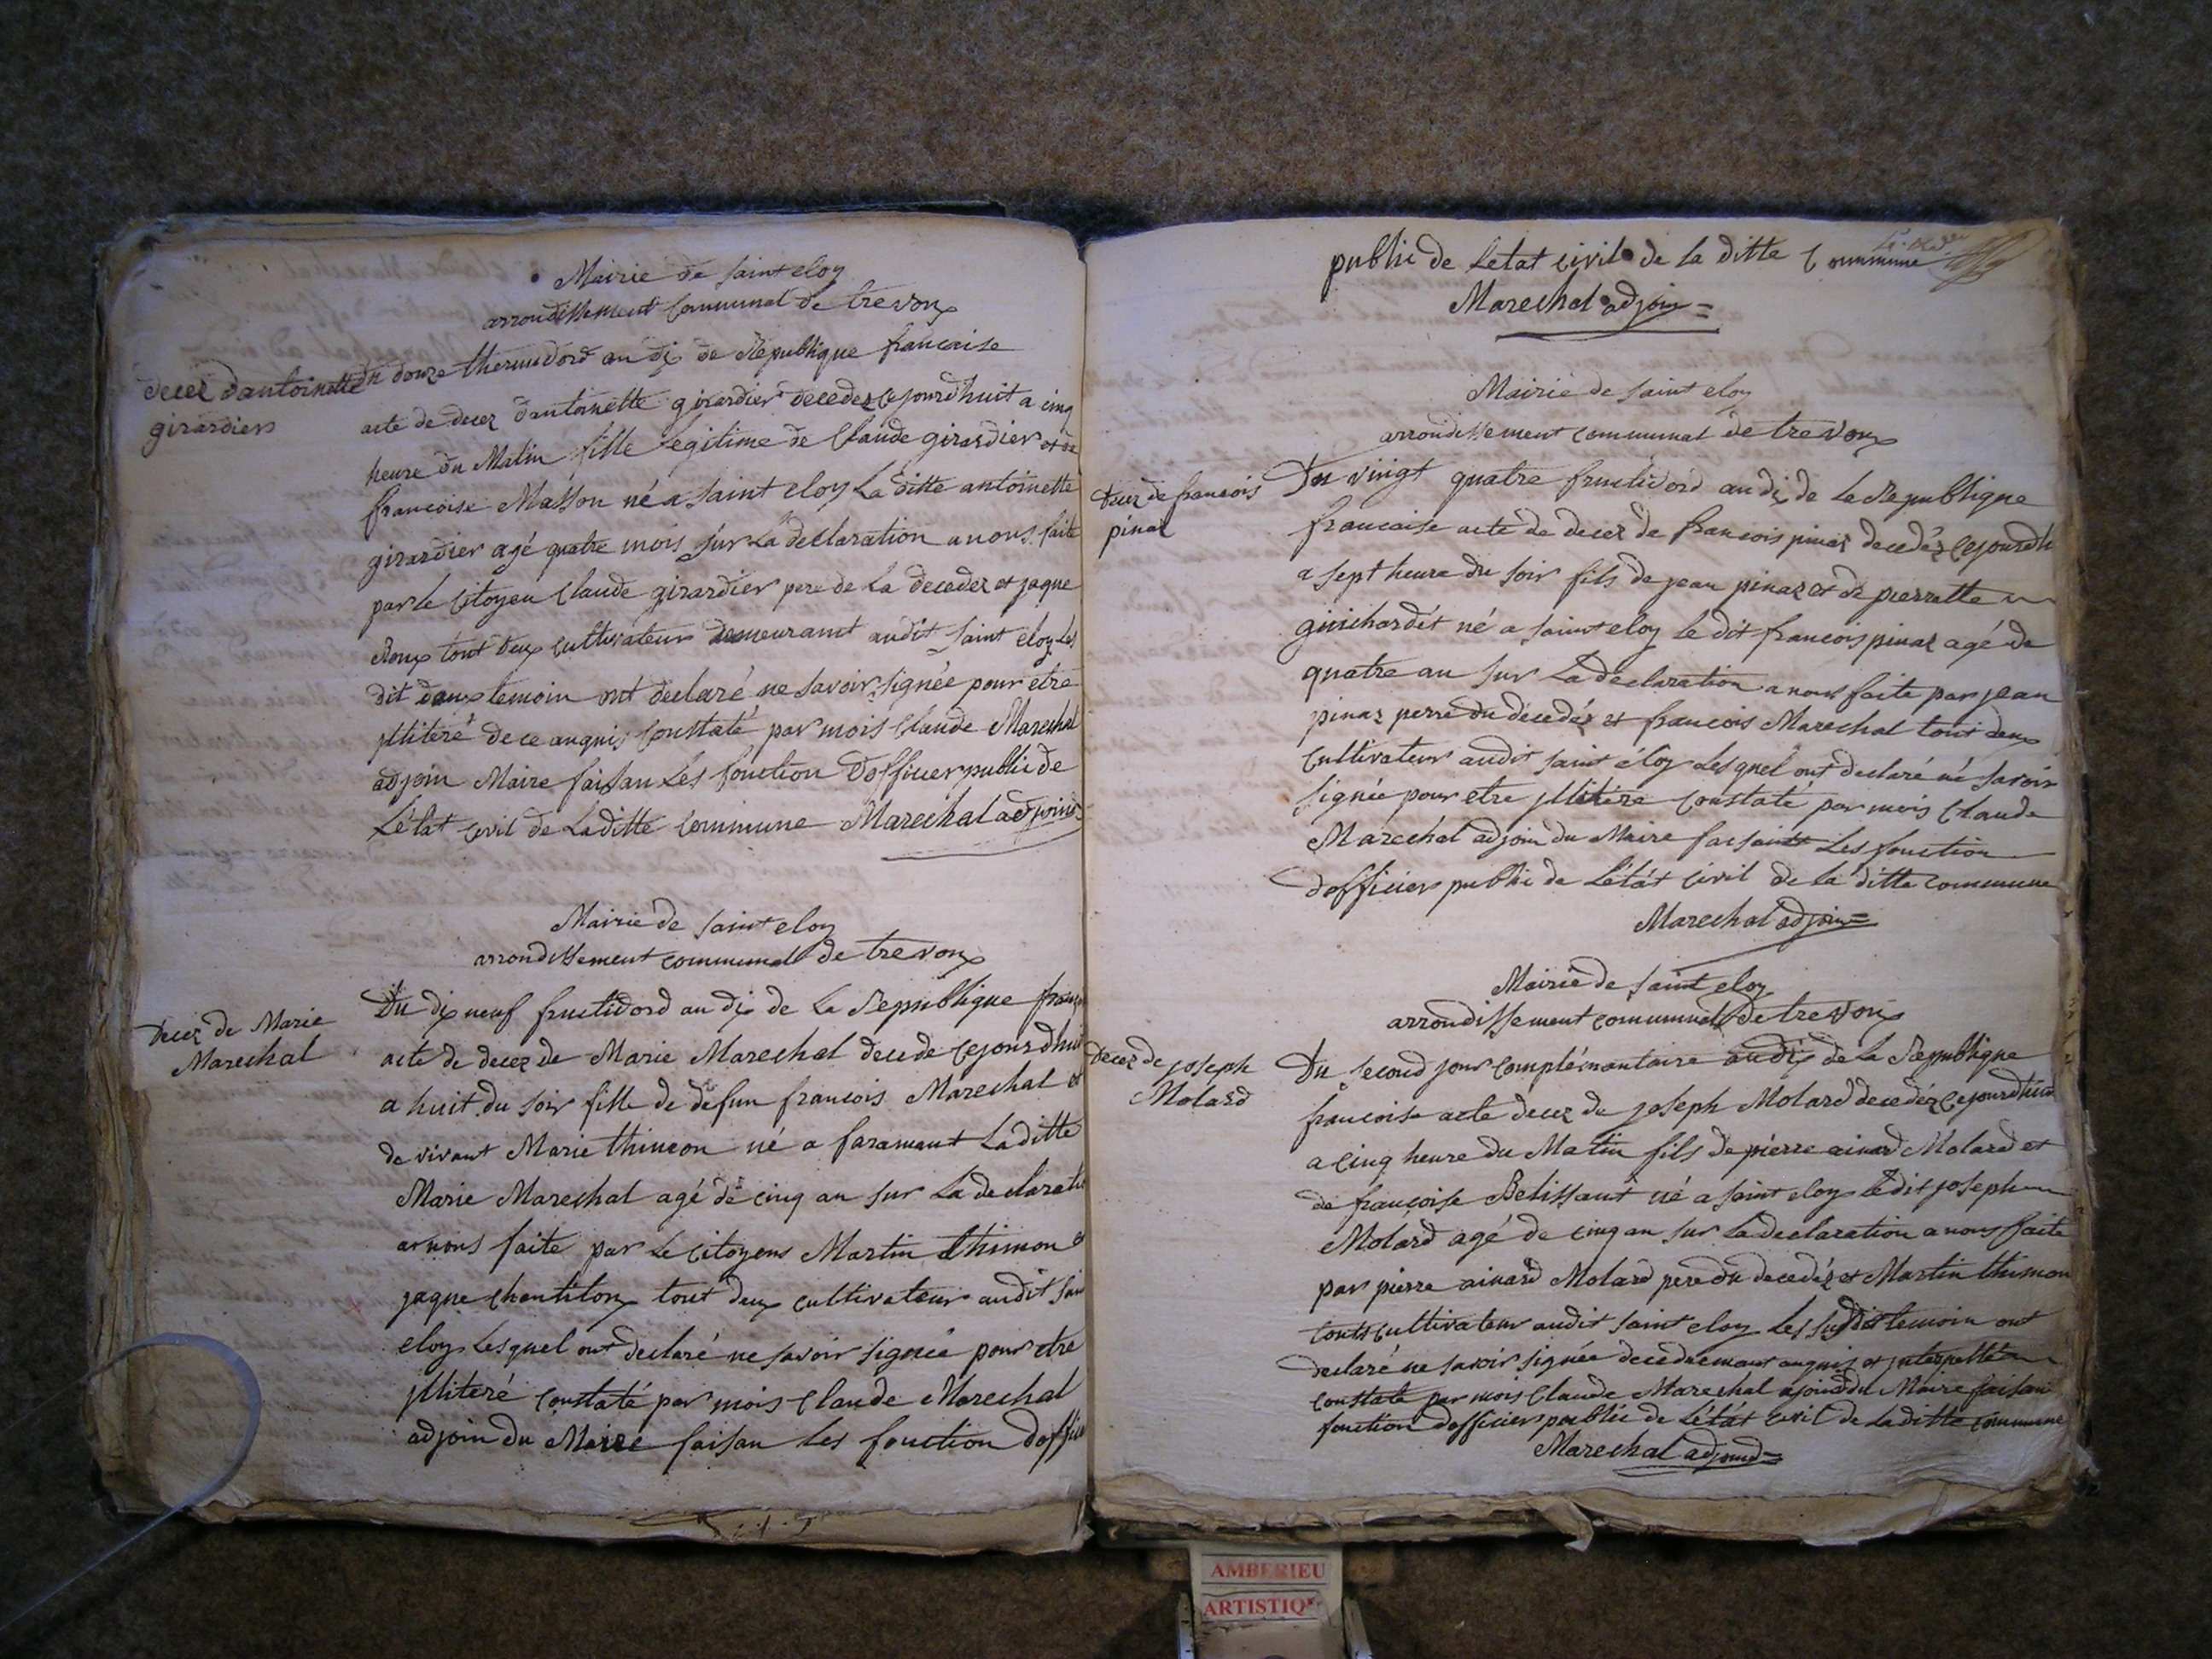 Mairie de saint eloy
arrondissement Communal de trevoux
decez dantoinette
girardier
du douze thermidord an dix de République francaise
acte de decez dantoinette girardier decedez cejourdhuit a cinq
heure du Matin fille legitime de Claude girardier et de
francoise Masson né a saint eloy La ditte antoinette
girardier agé quatre mois sur La declaration a nous faite
par le Citoyen Claude girardier pere de la decedez et jaque
Roux tout deux cultivateur demeurant audit saint eloy Les
dit deux temoin ont declaré ne savoir signée pour etre
jlliteré de ce anquis Constaté par mois Claude Marechal
adjoin Maire faisan Les fonction Dofficier public de
Létat Civil de Laditte Commune Marechal adjoind
Mairie de saint eloy
arrondissement communal de trevoux
Decez de Marie
Marechal
Du dix neuf fructidord an dix de La République
acte de decez de Marie Marechal decede cejourdhui
a huit du soir fille de defun francois Marechal et
de vivant Marie thimon né a faramant Laditte
Marie Marechal agé de cinq an sur La
a nous faite par Le Citoyens Martin thimon et
jaque Chentillon tout deux cultivateur audit
eloy Lesquel ont declaré ne savoir signée pour etre
jlliteré constaté par mois Claude Marechal
adjoin du Maire faisan Les fonction
public de Letat Civil de la ditte Commune
Marechal adjoin =
Mairie de saint eloy
arrondissement communal de trevoux
Decez de francois
pinaz
Du vingt quatre fructidord an dix de Le Republique
francaise acte de decez de francois pinaz decedéz
a sept heure du soir fils de jean pinaz et de pierrette
guichardét né a saint eloy le dit francois pinaz agé de
quatre an sur La declaration a nous faite par jean
pinaz perre du décedéz et francois Marechal tout deux
Cultivateur audit saint éloy Lesquel ont declaré né savoir
signée pour etre jlliteré Constaté par mois Claude
Maréchal adjoin du Maire faisant Les fonction
dofficier public de Létát Civil de la ditte commune
Marechal adjoin =
Mairie de saint eloy
arrondissement communal de trevoux
Decez de joseph
Molard
Du second jour complémantaire an dix de la République
francoise acte decez de joseph Molard decedéz
a cinq heure du Matin fils de pierre ainard Molard et
de francoise Belissant né a saint eloy Ledit joseph
Molard agé de cinq an sur La declaration a nous faite
par pierre ainard Molard pere du decedéz et Martin thimon
touts cultivateur audit saint eloy Les susdit temoin ont
declaré ne savoir signée de anquis et
constaté par mois Claude Marechal ajoind du Maire faisan
fonction dofficier public de Létát Civil de Laditte commune
Marechal adjoind =
AMBERIEU
ARTISTIQ